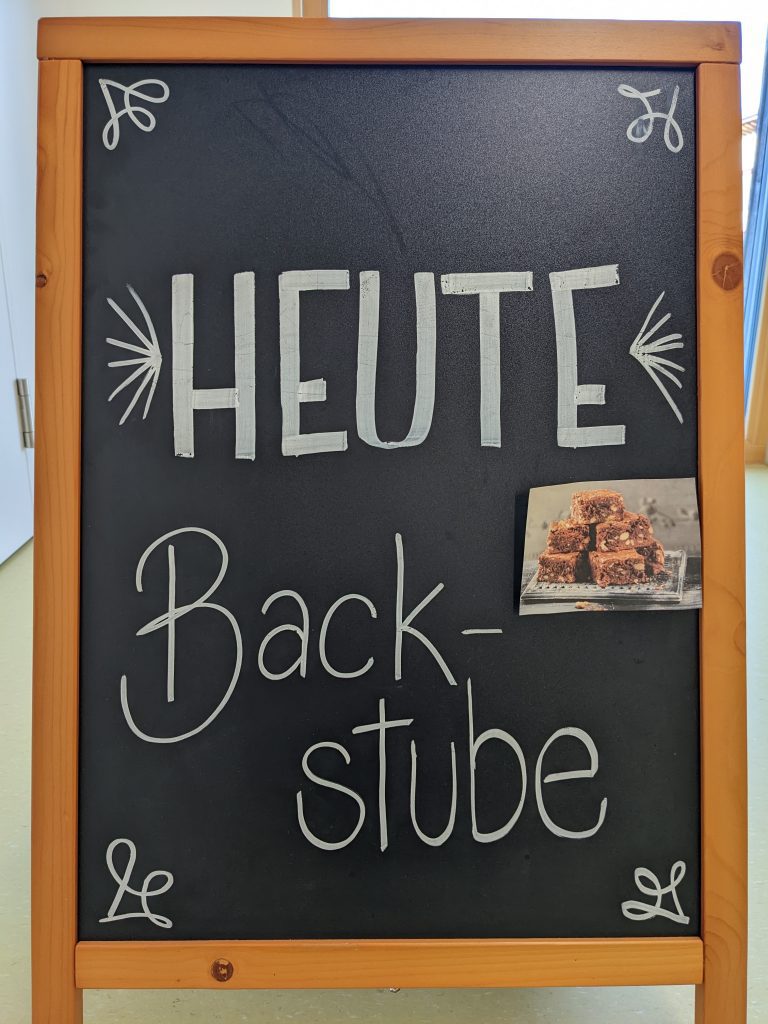 HEUTE
Back-
stube